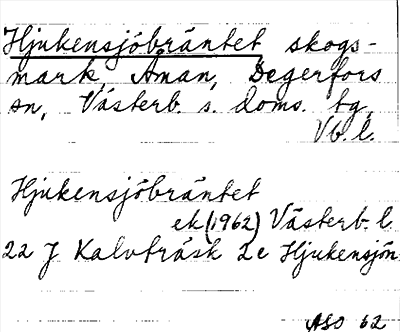 Hjukensjöbräntet skogs-
mark, Åman, Degerfors
sn, Västerb. s. doms. tg,
Vb. l.
Hjukensjöbräntet
ek (1962) Västerb. l.
22 J Kalvträsk 2e Hjukensjön
ASO 62